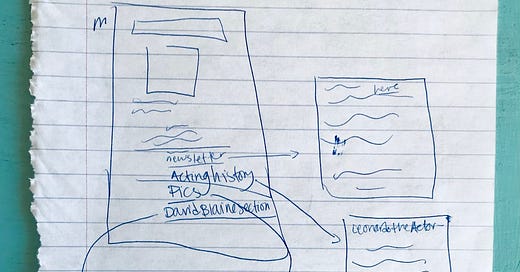 m
here
newsletter
Acting history
Pics
David Blaine section
Leonardo the Actor